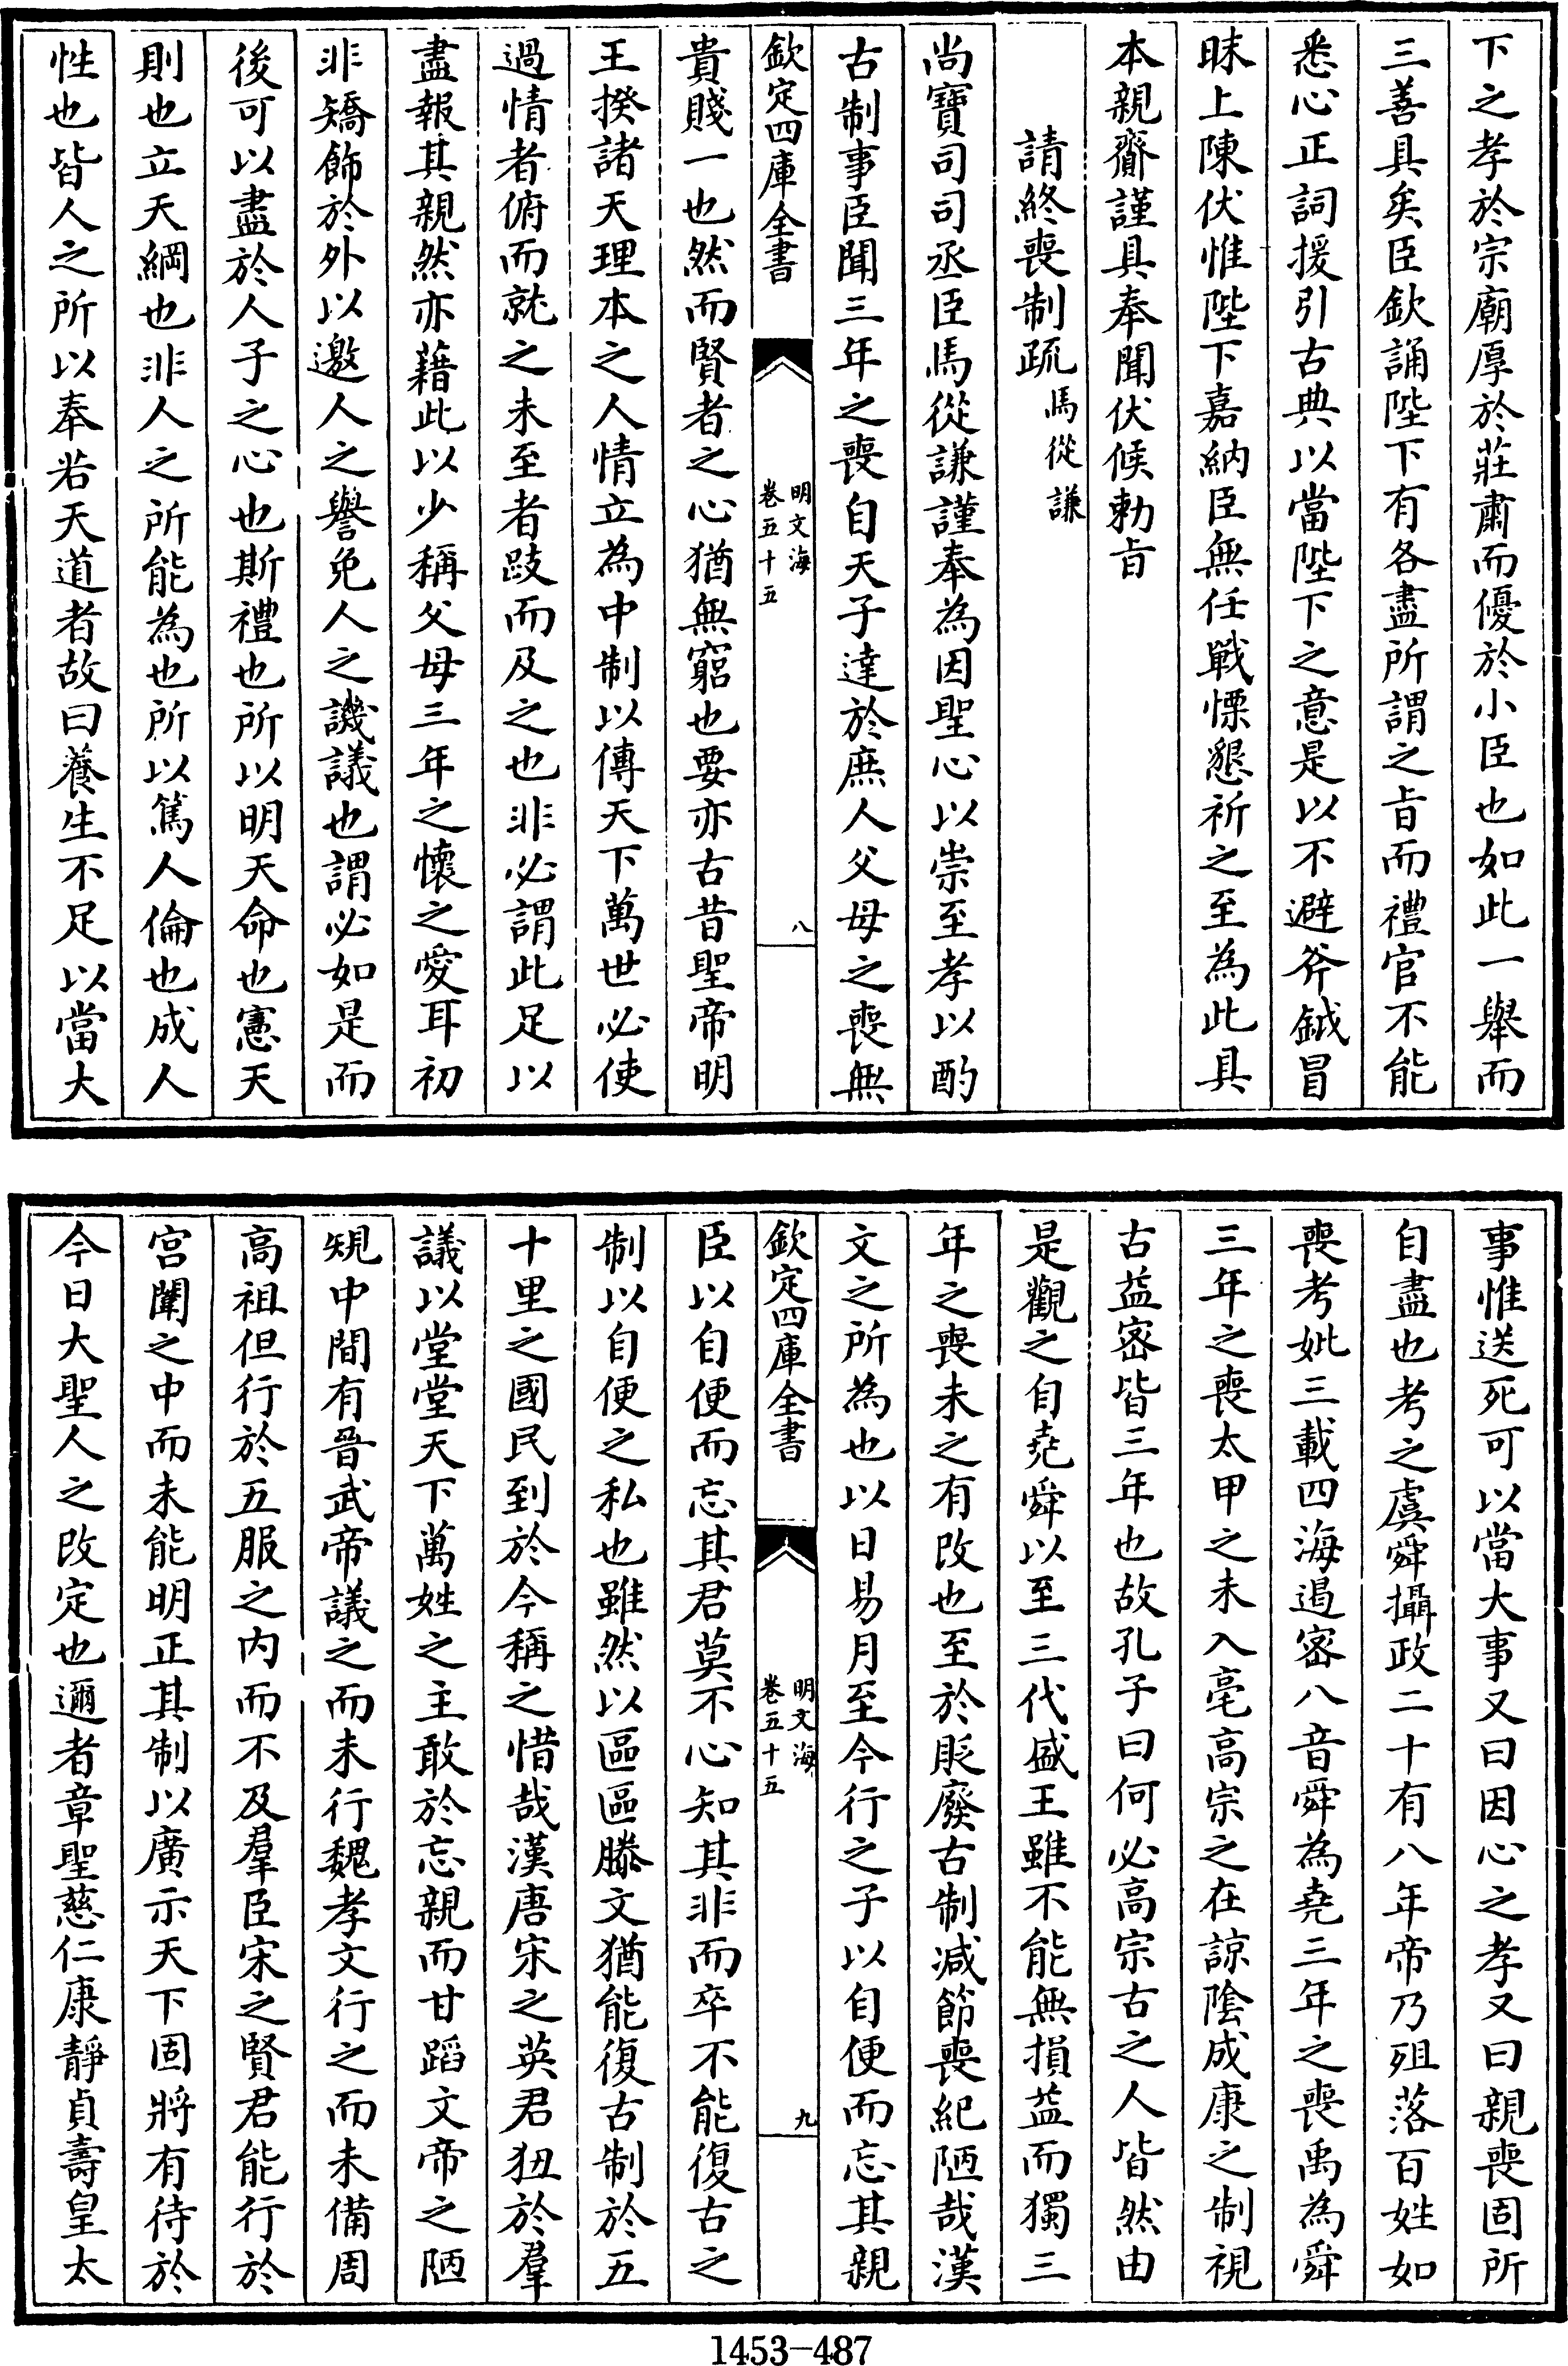 下之孝於宗廟厚於莊肅而優於小臣也如此一舉而
三善具矣臣欽誦陛下有各盡所謂之㫖而禮官不能
悉心正詞援引古典以當陛下之意是以不避斧鉞冒
昧上陳伏惟陛下嘉納臣無任戰慄懇祈之至為此具
本親齎謹具奉聞伏候勅㫖
請終喪制疏馬從謙
尚寶司司丞臣馬從謙謹奉為因聖心以崇至孝以酌
古制事臣聞三年之喪自天子達於庶人父母之喪無
欽定四庫全書
明文海
卷五十五
八
貴賤一也然而賢者之心猶無窮也要亦古昔聖帝明
王揆諸天理本之人情立為中制以傳天下萬世必使
過情者俯而就之未至者跂而及之也非必謂此足以
盡報其親然亦藉此以少稱父母三年之懷之愛耳初
非矯飾於外以邀人之譽免人之譏議也謂必如是而
後可以盡於人子之心也斯禮也所以明天命也憲天
則也立天綱也非人之所能為也所以篤人倫也成人
性也皆人之所以奉若天道者故曰養生不足以當大
事惟送死可以當大事又曰因心之孝又曰親喪固所
自盡也考之虞舜攝政二十有八年帝乃殂落百姓如
喪考妣三載四海遏密八音舜為堯三年之喪禹為舜
三年之喪太甲之未入亳高宗之在諒陰成康之制視
古益密皆三年也故孔子曰何必高宗古之人皆然由
是觀之自堯舜以至三代盛王雖不能無損益而獨三
年之喪未之有改也至於貶廢古制減節喪紀陋哉漢
文之所為也以日易月至今行之子以自便而忘其親
欽定四庫全書
明文海
卷五十五
九
臣以自便而忘其君莫不心知其非而卒不能復古之
制以自便之私也雖然以區區滕文猶能復古制於五
十里之國民到於今稱之惜哉漢唐宋之英君狃於羣
議以堂堂天下萬姓之主敢於忘親而甘蹈文帝之陋
規中間有晉武帝議之而未行魏孝文行之而未備周
高祖但行於五服之内而不及羣臣宋之賢君能行於
宫闈之中而未能明正其制以廣示天下固將有待於
今日大聖人之改定也邇者章聖慈仁康靜貞壽皇太
1453-487